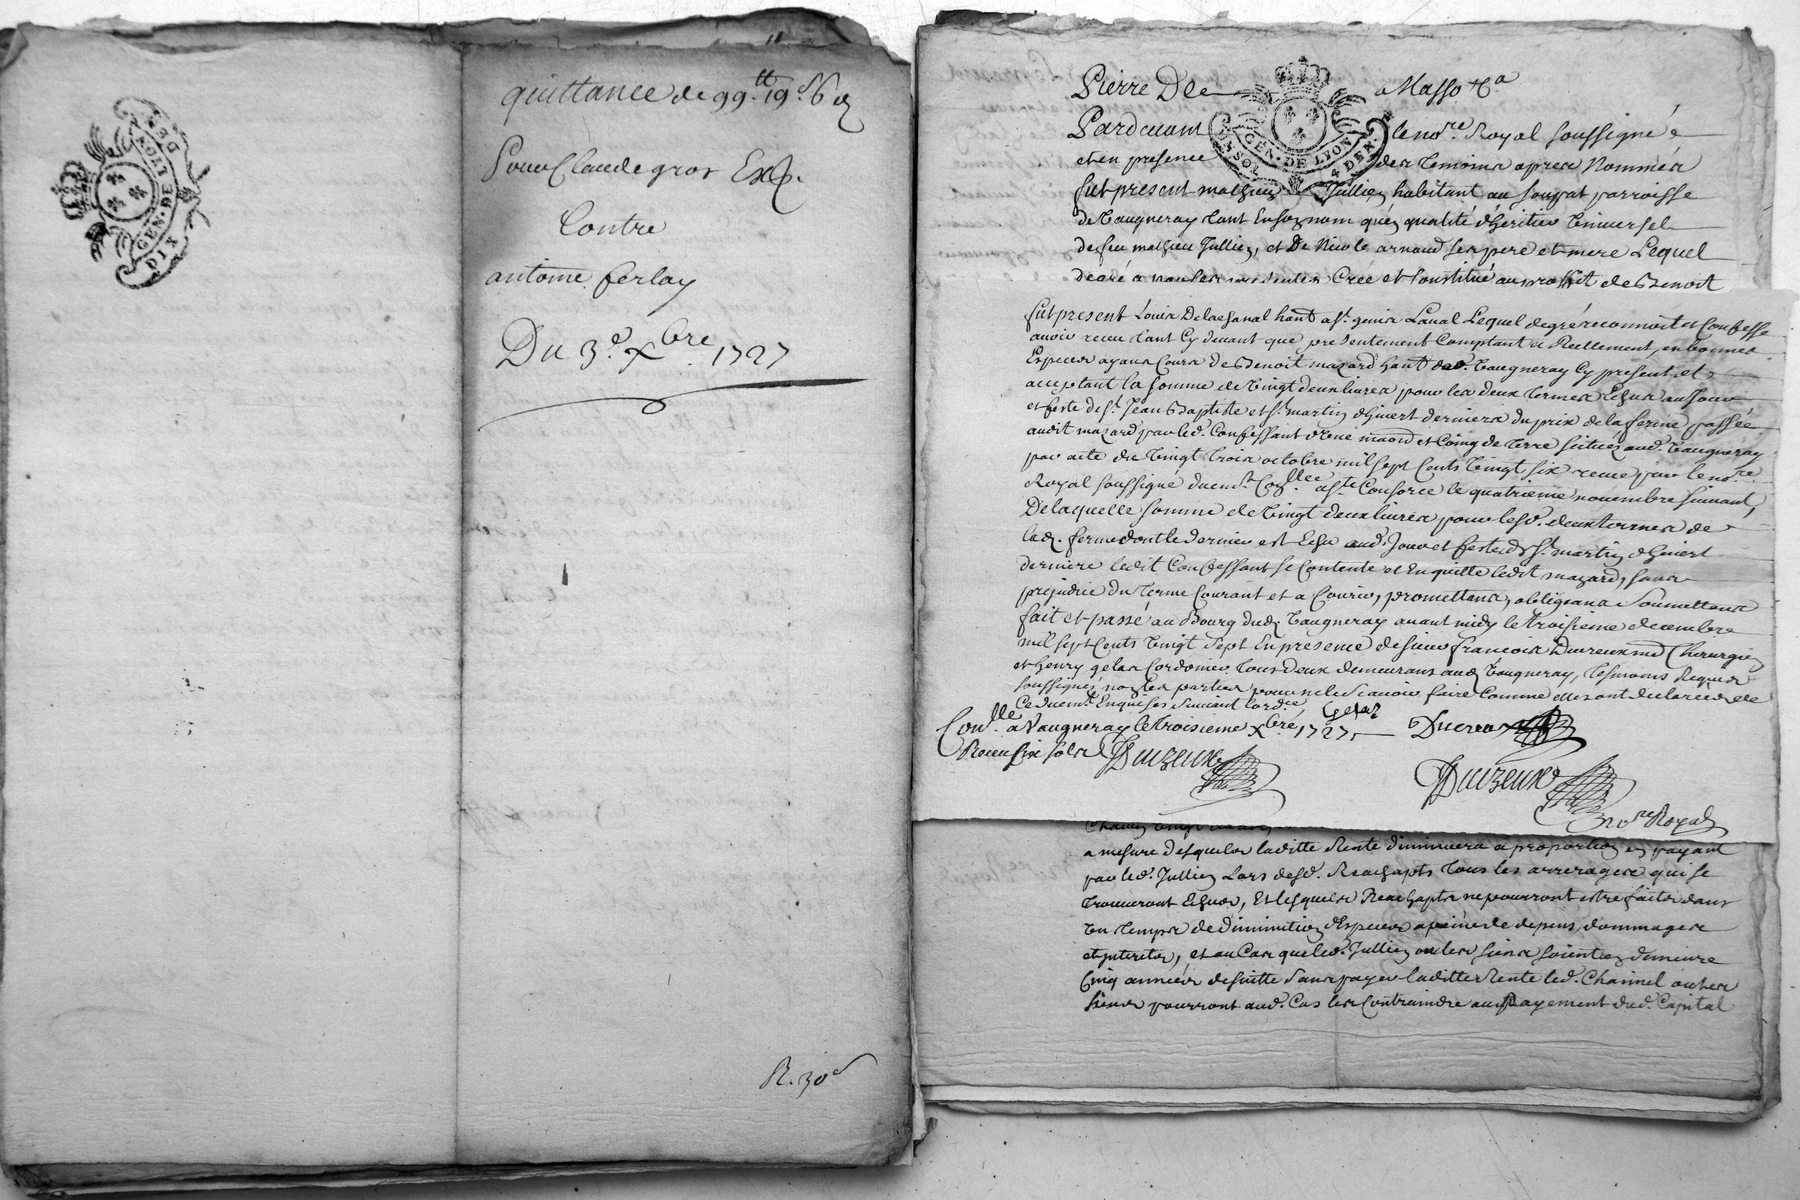 quittance de 99tt 19s 6d
Pour Claude gros Exp.
Contre
antoine ferlay
Du 3e xbre 1727
R. 30s
GEN. DE LYON
DIX DEN.
Pierre De Masso &a
Pardevant le nore. Royal soussigné
et en presence des temoins apres Nommés
fut present mathieu Jullien habitant au parroisse
de Vaugneray tant en son nom qu'en qualité d'heritier Universel
de feu mathieu Jullien, et De Nicole arnaud ses pere et mere Lequel
de gré a par les presentes Créé et Constitué au proffit de Benoit
GEN. DE LYON
UN SOL 4 DEN.
fut present Louis Delachanal hant a St. genis Laval Lequel de gré reconnoit et Confesse
avoir receu tant Cy devant que presentement Comptant et Reellement, en bonnes
Especes ayans Cours de Benoit mazard hant dud. Vaugneray Cy present et
acceptant la somme de Vingt deux livres pour les deux termes Echus au jour
et feste de St. Jean Baptiste et St. martin d'hivert derniers du prix de la ferme passée
audit mazard par led. Confessant d'une maison et Coing de terre scitués aud. Vaugneray
par acte du Vingt trois octobre mil sept Cents Vingt six receu par le nore.
Royal soussigné duemt. Conllé a Ste Consorce le quatrieme novembre suivant,
De laquelle somme de Vingt deux livres pour lesd. deux termes de
lad. ferme dont le dernier est Echu aud. Jour et feste de St. martin d'hivert
derniere ledit Confessant se Contente et En quitte ledit mazard, sans
prejudice du terme Courant et a Courir, promettans, obligeans Soumettans
fait et passé au Bourg dud. Vaugneray avant midy le troisieme decembre
mil sept Cents Vingt sept En presence de sieur francois Ducreux md Chirurgien
et henry gelas Cordonier tous deux demeurans aud. Vaugneray, tesmoins Requis
soussignés non les parties pour ne le scavoir faire Comme elles ont declaré de
Ce duemt. Enquises suivant l'ordce.
Conllé a Vaugneray le troisieme xbre 1727
Receu six sols
Gelas
Ducreux
Duizeux
Duizeux
nore Royal
a mesure desquels laditte Rente diminuera a proportion en payant
par led. Jullien Lors desd. Reachapts tous les arrerages qui se
trouveront Echus, Et lesquels Reachapts ne pourront estre faits dans
un temps de diminution d'Especes a peine de depens, dommages
et interets, et au Cas que led. Jullien ou les siens soient en demeure
Cinq années de suitte sans payer laditte Rente led. Charmel ou les
siens pourront aud. Cas les Contraindre au Payement dud. Capital